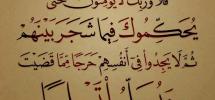 فلا وربك لا يؤمنون حتى
يُحَكِّمُوكَ فِيمَا شَجَرَ بَيْنَهُمْ
ثُمَّ لَا يَجِدُوا فِي أَنفُسِهِمْ حَرَجًا مِمَّا قَضَيْتَ